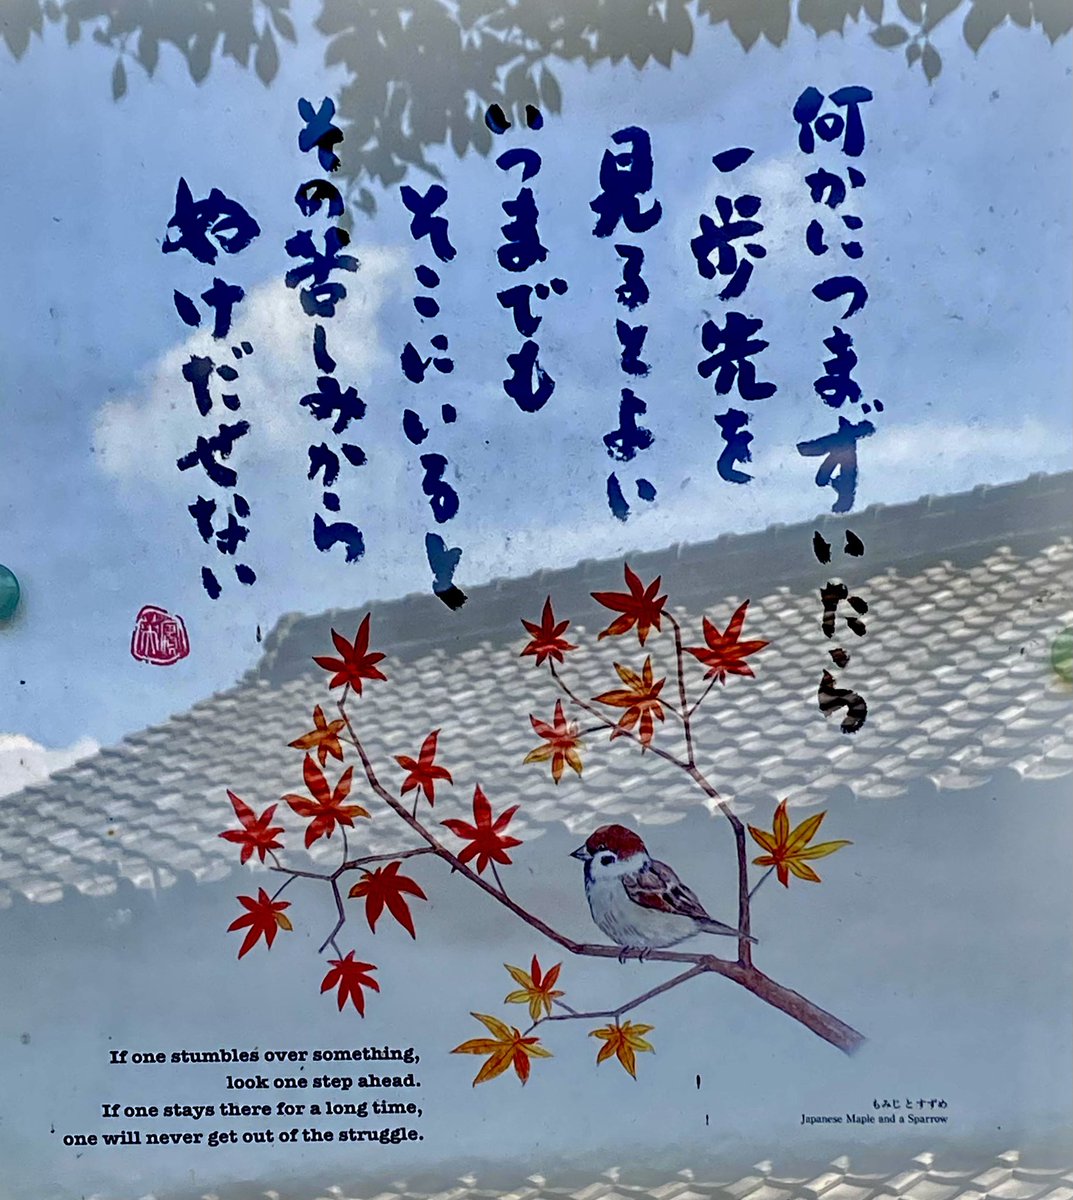 何かにつまずいたら
一歩先を
見るとよい
いつまでも
そこにいると
その苦しみから
ぬけだせない
If one stumbles over something,
look one step ahead.
If one stays there for a long time,
one will never get out of the struggle.
もみじ と すずめ
Japanese Maple and a Sparrow